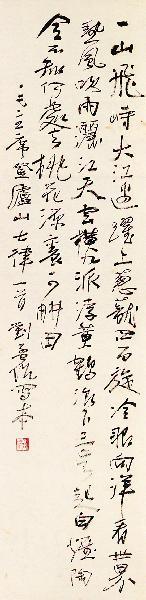 一山飛峙大江邊躍上蔥蘢四百旋冷眼向洋看世界
熱風吹雨灑江天雲橫九派浮黃鶴浪下三吳起白煙陶
令不知何處去桃花源裏可耕田
毛主席登廬山七律一首劉孟伉寫